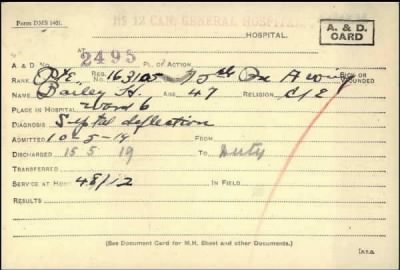 Form DMS 1401. HS 12 CAN. GENERAL HOSPITAL
HOSPITAL.
A. & D. CARD
AT
A & D 2495 PL. OF ACTION
RANK Pte. REG. No. 163105 SICK OR WOUNDED
NAME Bailey H. AGE 47 RELIGION C/E
PLACE IN HOSPITAL Ward 6
DIAGNOSIS Septal deflection
ADMITTED 10-5-19 FROM
DISCHARGED 15 5 19 TO Duty
TRANSFERRED
SERVICE AT HOME 48/12 IN FIELD
RESULTS
(See Document Card for M.H. Sheet and other Documents.)